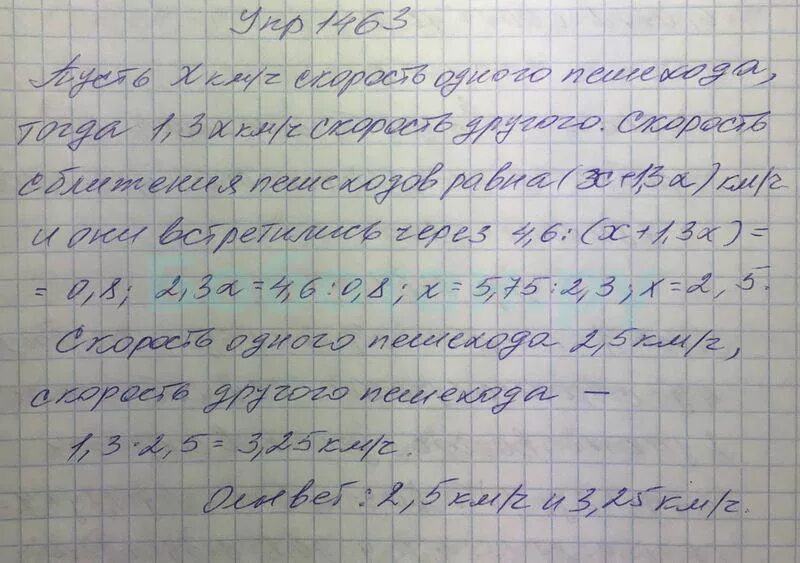 Упр 1463
Пусть x км/ч скорость одного пешехода,
тогда 1,3x км/ч скорость другого. Скорость
сближения пешеходов равна (x+1,3x) км/ч
и они встретились через 4,6:(x+1,3x)=
= 0,8; 2,3x=4,6:0,8; x=5,75:2,3; x=2,5.
Скорость одного пешехода 2,5км/ч,
скорость другого пешехода —
1,3·2,5=3,25км/ч.
Ответ: 2,5км/ч и 3,25км/ч.